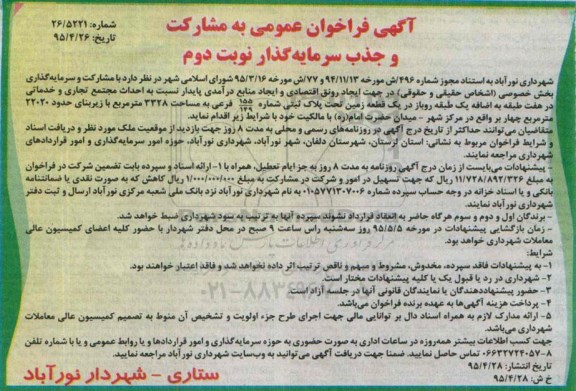 آگهی فراخوان عمومی به مشارکت
و جذب سرمایه‌گذار نوبت دوم
شماره: ۲۶/۵۲۲۱
تاریخ: ۹۵/۴/۲۶
شهرداری نورآباد به استناد مجوز شماره ۴۹۶/ش مورخه ۹۴/۱۱/۱۳ و ۷۷/ش مورخه ۹۵/۳/۱۶ شورای اسلامی شهر در نظر دارد با مشارکت و سرمایه‌گذاری
بخش خصوصی (اشخاص حقیقی و حقوقی) در جهت ایجاد رونق اقتصادی و ایجاد منابع درآمدی پایدار نسبت به احداث مجتمع تجاری و خدماتی
در هفت طبقه به اضافه یک طبقه روباز در یک قطعه زمین تحت پلاک ثبتی شماره ۱۵۵/۱۴۹ فرعی به مساحت ۳۳۲۸ مترمربع با زیربنای حدود ۲۲۰۲۰
مترمربع چهار بر واقع در مرکز شهر - میدان حضرت امام(ره) با مالکیت خود با شرایط زیر اقدام نماید.
متقاضیان می‌توانند حداکثر از تاریخ درج آگهی در روزنامه‌های رسمی و محلی به مدت ۸ روز جهت بازدید از موقعیت ملک مورد نظر و دریافت اسناد
و شرایط فراخوان مربوط به نشانی: استان لرستان، شهرستان دلفان، شهر نورآباد، شهرداری نورآباد، حوزه امور سرمایه‌گذاری و امور قراردادهای
شهرداری مراجعه نمایند.
- پیشنهادات می‌بایست از زمان درج آگهی روزنامه به مدت ۸ روز به جز ایام تعطیل، همراه با ۱- ارائه اسناد و سپرده بابت تضمین شرکت در فراخوان
به مبلغ ۱۱/۷۲۸/۸۹۲/۳۲۶ ریال که جهت تسهیل در امور و شرکت در مشارکت به مبلغ ۱/۰۰۰/۰۰۰/۰۰۰ ریال کاهش که به صورت نقدی یا ضمانتنامه
بانکی و یا اسناد خزانه در وجه حساب سپرده شماره ۰۱۰۵۷۷۱۳۰۷۰۰۶ به نام شهرداری نورآباد نزد بانک ملی شعبه مرکزی نورآباد ارسال و ثبت دفتر
شهرداری نورآباد نمایند.
- برندگان اول و دوم و سوم هرگاه حاضر به انعقاد قرارداد نشوند سپرده آنها به ترتیب به سود شهرداری ضبط خواهد شد.
- زمان بازگشایی پیشنهادات در مورخه ۹۵/۵/۵ روز سه‌شنبه راس ساعت ۹ صبح در محل دفتر شهردار با حضور کلیه اعضای کمیسیون عالی
معاملات شهرداری خواهد بود.
شرایط:
۱- به پیشنهادات فاقد سپرده، مخدوش، مشروط و مبهم و ناقص ترتیب اثر داده نخواهد شد و فاقد اعتبار خواهند بود.
۲- شهرداری در رد یا قبول یک یا کلیه پیشنهادات مختار است.
۳- حضور پیشنهاددهندگان یا نمایندگان قانونی آنها در جلسه آزاد است.
۴- پرداخت هزینه آگهی‌ها به عهده برنده فراخوان می‌باشد.
۵- ارائه مدارک لازم به همراه اسناد دال بر توانایی مالی جهت اجرای طرح جزء اولویت و تشخیص آن منوط به تصمیم کمیسیون عالی معاملات
شهرداری می‌باشد.
جهت کسب اطلاعات بیشتر همه‌روزه در ساعات اداری به صورت حضوری به حوزه سرمایه‌گذاری و امور قراردادها و یا روابط عمومی و یا با شماره تلفن
۸-۰۶۶۳۲۷۲۴۰۵۷ تماس حاصل نمایید. ضمنا جهت دریافت آگهی می‌توانید به وب‌سایت شهرداری نورآباد مراجعه نمایید.
تاریخ انتشار: ۹۵/۴/۲۸
خ ش: ۹۵/۴/۲۸
ستاری - شهردار نورآباد